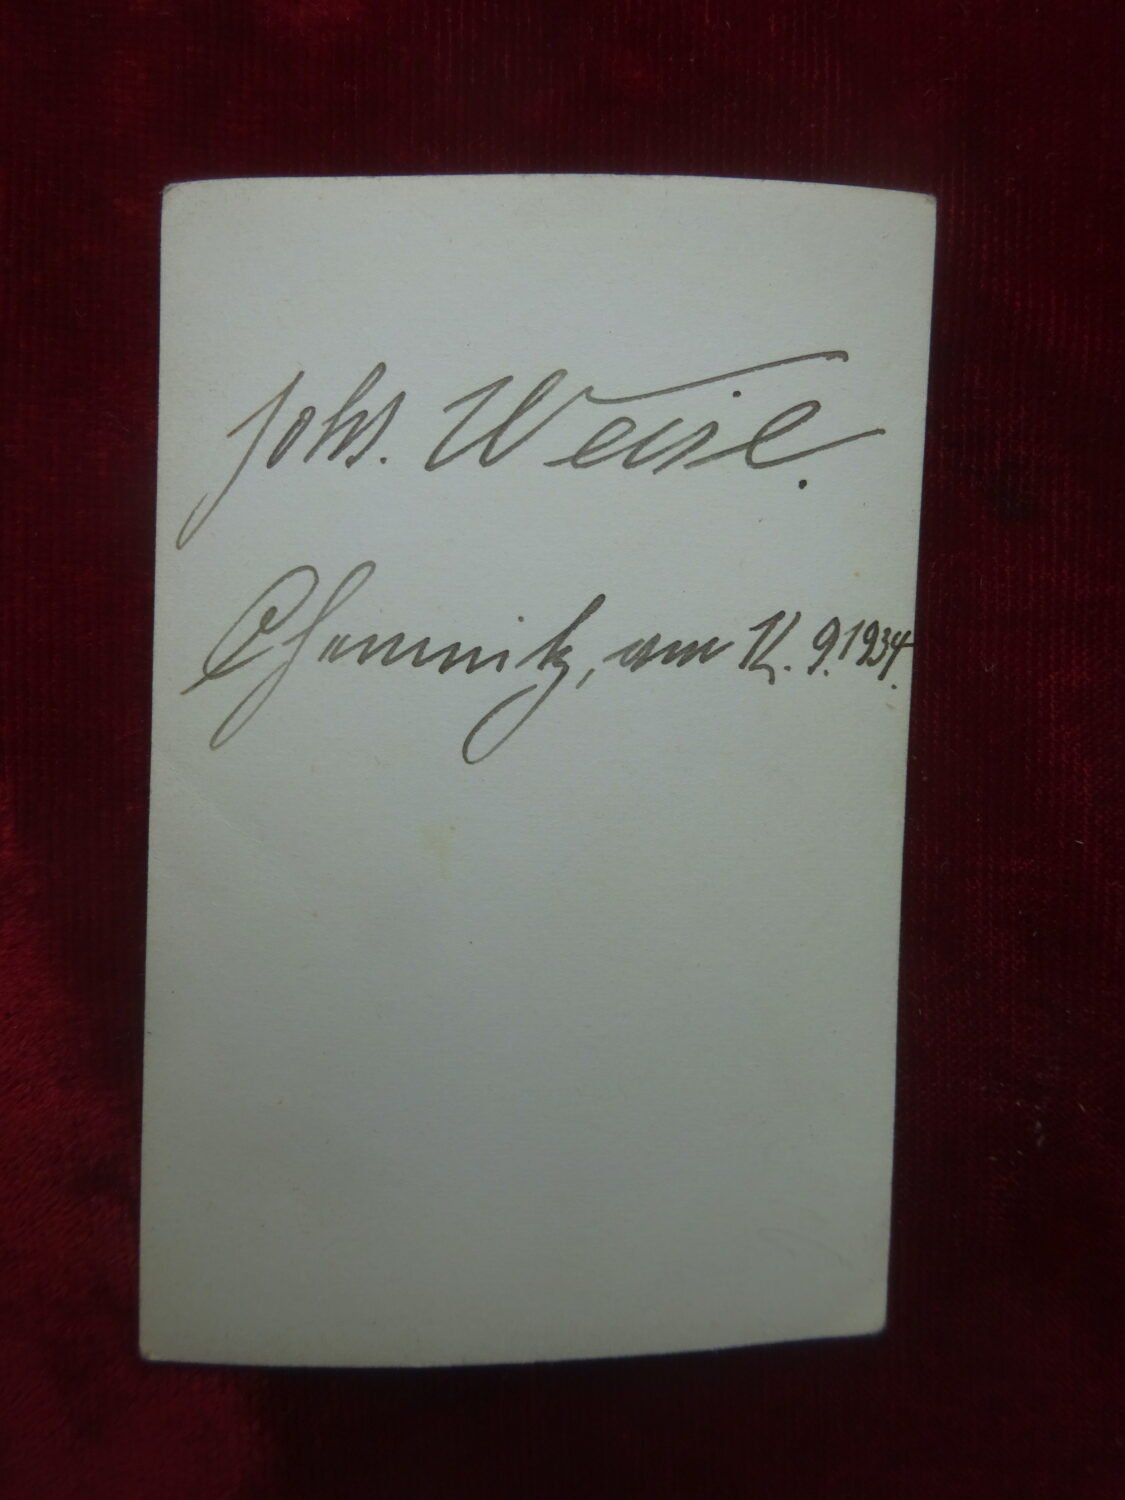 Johs. Weise.
Chemnitz, am 12.9.1934.